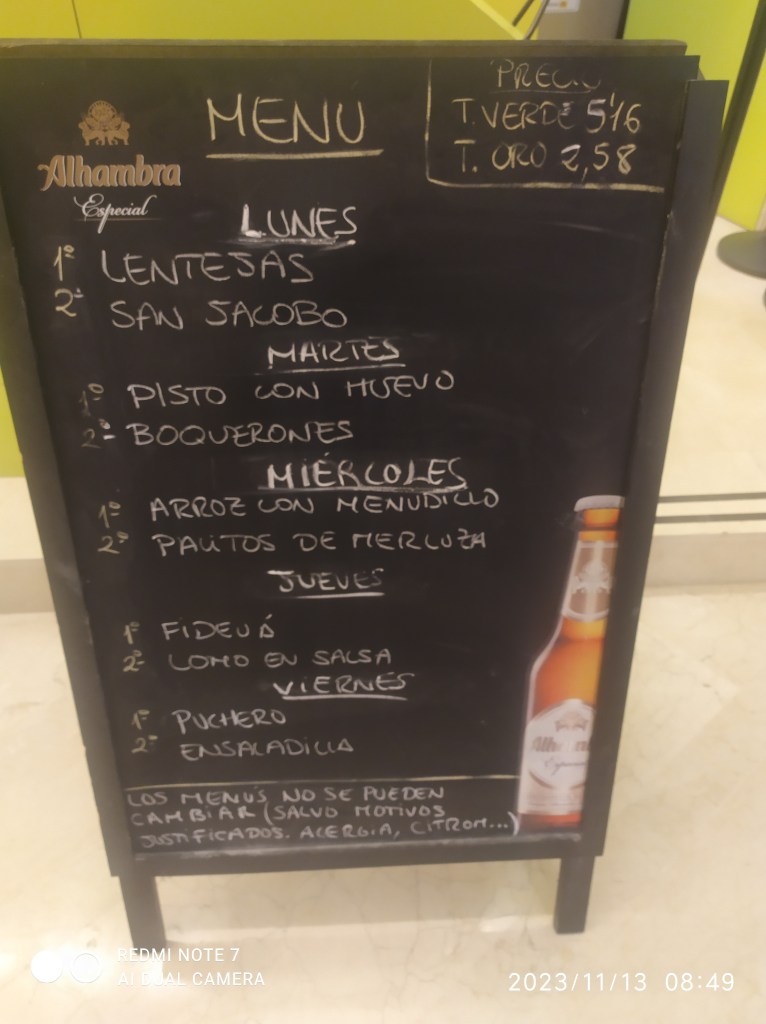 MENÚ
PRECIO
T. VERDE 5'16
T. ORO 2,58
Alhambra
Especial
LUNES
1º LENTEJAS
2º SAN JACOBO
MARTES
1º PISTO CON HUEVO
2º- BOQUERONES
MIÉRCOLES
1º ARROZ CON MENUDILLO
2º PALITOS DE MERLUZA
JUEVES
1º FIDEUÁ
2º LOMO EN SALSA
VIERNES
1º PUCHERO
2º ENSALADILLA
LOS MENÚS NO SE PUEDEN
CAMBIAR (SALVO MOTIVOS
JUSTIFICADOS. ALERGIA, CITROM...)
Alhambra
Especial
REDMI NOTE 7
AI DUAL CAMERA
2023/11/13 08:49